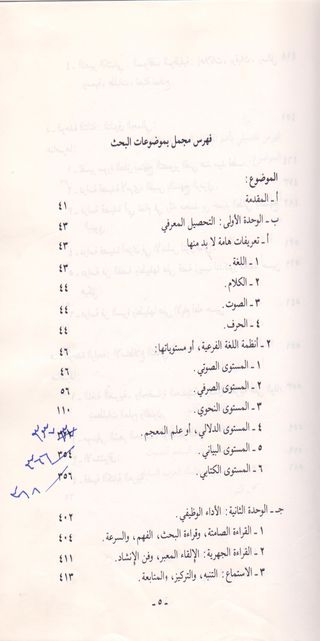 فهرس مجمل بموضوعات البحث
الموضوع :
أ ـ المقدمة ٤١
ب ـ الوحدة الأولى : التحصيل المعرفي ٤٣
أ ـ تعريفات هامة لا بد منها ٤٣
١ ـ اللغة . ٤٣
٢ ـ الكلام . ٤٤
٣ ـ الصوت . ٤٤
٤ ـ الحرف . ٤٤
٢ ـ أنظمة اللغة الفرعية ، أو مستوياتها : ٤٦
١ ـ المستوى الصوتي . ٤٦
٢ ـ المستوى الصرفي . ٥٦
٣ ـ المستوى النحوي . ١١٠
٤ ـ المستوى الدلالي ، أو علم المعجم .
٥ ـ المستوى البياني . ٣٥٤
٦ ـ المستوى الكتابي . ٣٥٦
جـ ـ الوحدة الثانية : الأداء الوظيفي . ٤٠٢
١ ـ القراءة الصامتة ، وقراءة البحث ، الفهم ، والسرعة . ٤٠٤
٢ ـ القراءة الجهرية : الإلقاء المعبر ، وفن الإنشاد . ٤١١
٣ ـ الاستماع : التنبه ، والتركيز ، والمتابعة . ٤١٣
ـ ٥ ـ